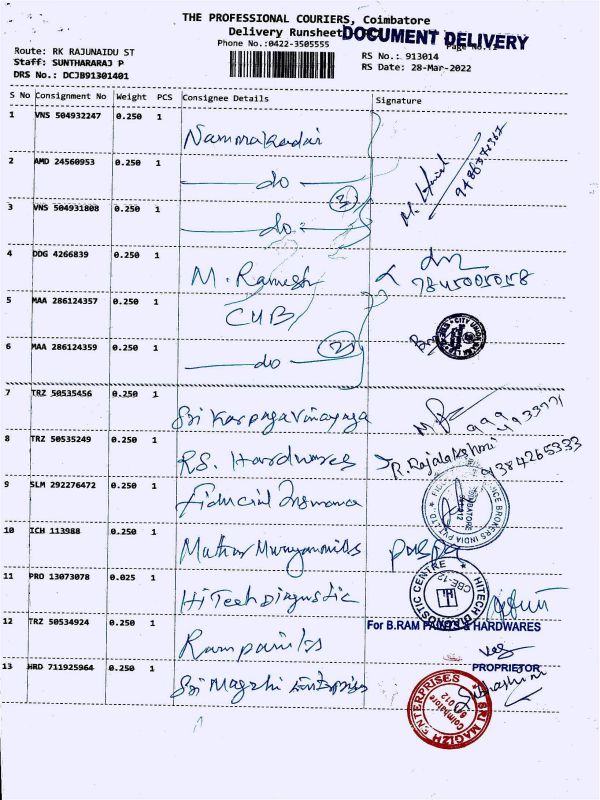 THE PROFESSIONAL COURIERS, Coimbatore
Delivery Runsheet
DOCUMENT DELIVERY
Phone No.:0422-3505555
Page No.:1
Route: RK RAJUNAIDU ST
Staff: SUNTHARARAJ P
DRS No.: DCJB91301401
RS No.: 913014
RS Date: 28-Mar-2022
S No Consignment No Weight PCS Consignee Details Signature
1 VNS 504932247 0.250 1 Nammakadai
2 AMD 24560953 0.250 1 do
3
3 VNS 504931808 0.250 1 do
4 DDG 4266839 0.250 1 M. Ramesh
5 MAA 286124357 0.250 1 CUB
CITY UNION BANK
6 MAA 286124359 0.250 1 do
2
7 TRZ 50535456 0.250 1 Sri Karpagavinayaga
8 TRZ 50535249 0.250 1 RS. Hardwares R. Rajalakshmi 9384265333
9 SLM 292276472 0.250 1 Fiducial Insurance
BROKERS INDIA PVT LTD
COIMBATORE
10 ICH 113988 0.250 1
11 PRO 13073078 0.025 1 HiTech Diagnostic
HITECH DIAGNOSTIC CENTRE
CBE-12
12 TRZ 50534924 0.250 1
For B.RAM PAINTS & HARDWARES
PROPRIETOR
13 HRD 711925964 0.250 1 Sri Magizhi Enterprises
SRI MAGIZH ENTERPRISES
Coimbatore